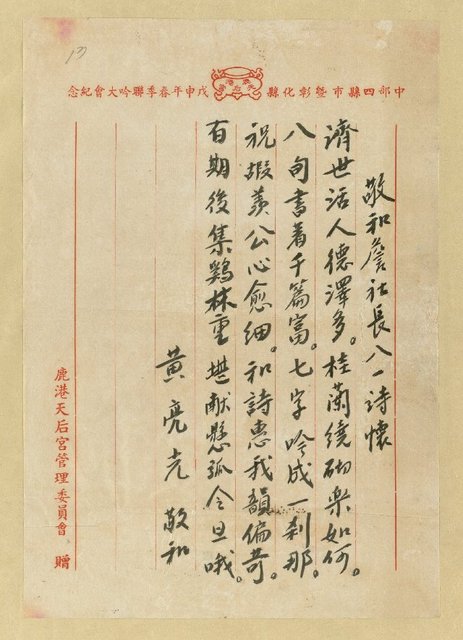 中部四縣市暨彰化縣戊申年春季聯吟大會紀念
敬和詹社長八一詩懷
濟世活人德澤多。桂蘭繞砌樂如何。
八句書着千篇富。七字吟成一剎那。
祝嘏羨公心愈細。和詩惠我韻偏奇。
百期後集鷄林重。堪献懸弧今旦哦。
黃亮光敬和
鹿港天后宮管理委員會 贈